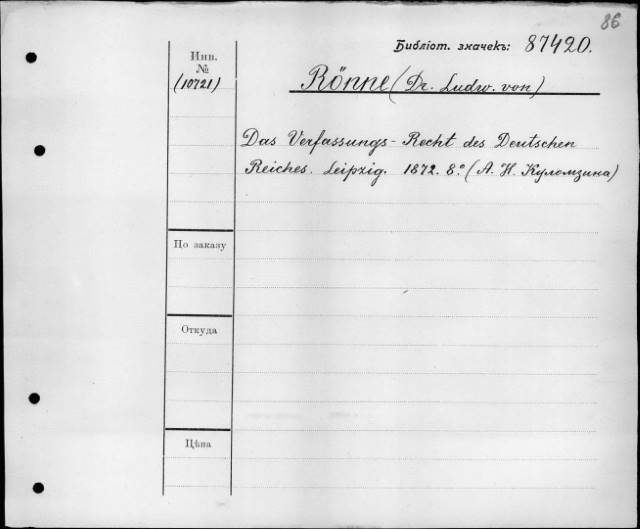 86
Библіот. значекъ: 87420.
Инв.
№
(10721)
Rönne (Dr. Ludw. von)
Das Verfassungs-Recht des Deutschen
Reiches. Leipzig. 1872. 8.° (А. Н. Куломзина)
По заказу
Откуда
Цѣна